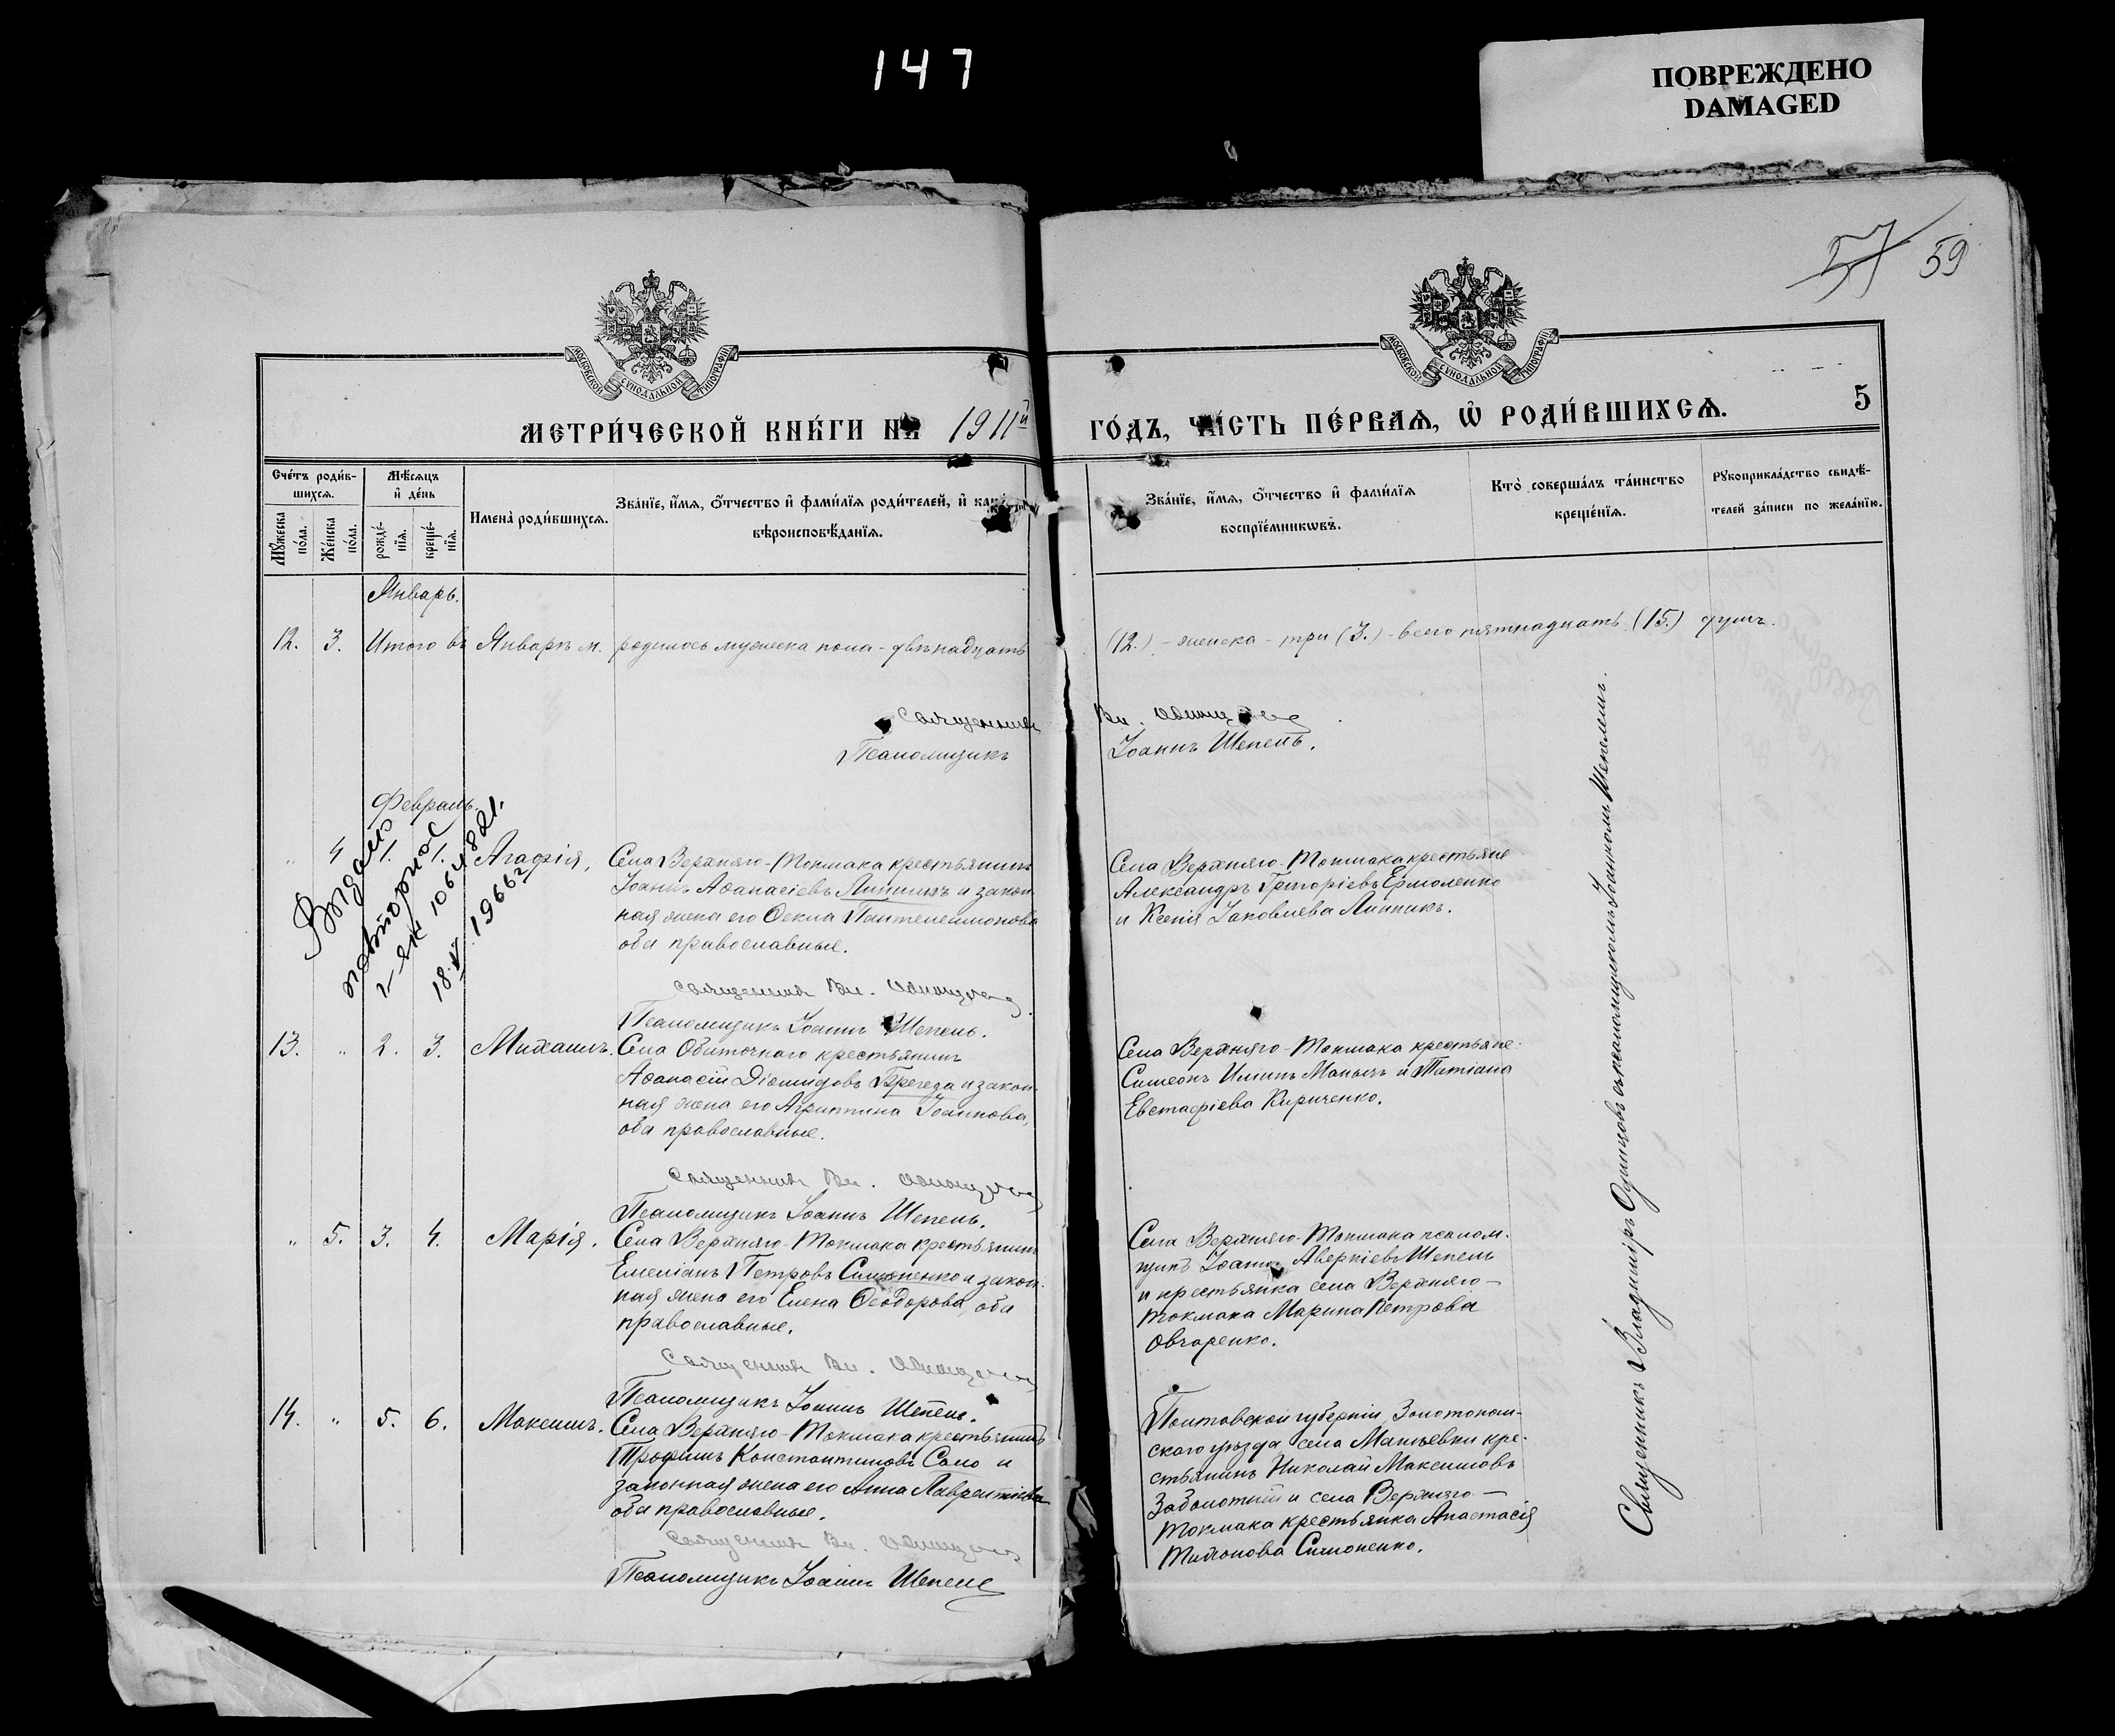 147
ПОВРЕЖДЕНО
DAMAGED
57 59
МОСКОВСКОЙ СУНОДАЛЬНОЙ ТИПОГРАФІИ
МОСКОВСКОЙ СУНОДАЛЬНОЙ ТИПОГРАФІИ
МЕТРИ́ЧЕСКОЙ КНИ́ГИ НА 1911й
ГО́ДЪ, ЧА́СТЬ ПЕ́РВАѦ, Ѡ҆ РОДИ́ВШИХСѦ. 5
Сче́тъ роди́в-
шихсѧ.
Мꙋ́жеска по́ла.
Же́нска по́ла.
Мѣ́сѧцъ
и҆ де́нь
рожде́-
нїѧ.
креще́-
нїѧ.
Имена̀ роди́вшихсѧ.
Зва́нїе, и҆́мѧ, ѻ҆́тчество и҆ фами́лїѧ роди́телей, и҆ како́
вѣроисповѣ́данїѧ.
Зва́нїе, и҆́мѧ, ѻ҆́тчество и҆ фами́лїѧ
воспрїе́мникѡвъ.
Кто̀ соверша́лъ та́инство
креще́нїѧ.
Рꙋкоприкла́дство свидѣ́-
телей за́писи по жела́нїю.
Январь.
12. 3. Итого въ Январѣ м. родилось мужеска пола - двѣнадцать (12.) - женска - три (3.) - всего пятнадцать (15.) душъ.
Священникъ Вл. Одинцовъ
Псаломщикъ Іоаннъ Шепель.
Февраль.
Выдано
повторное
I-ЯК 1064821.
18.V.1966г
" 4 1. 1. Агафія,
Села Верхняго-Токмака крестьянинъ
Іоаннъ Аѳанасіевъ Линникъ и закон-
ная жена его Ѳекла Пантелеимонова
оба православные.
Села Верхняго-Токмака крестьяне
Александръ Григоріевъ Ермоленко
и Ксенія Іаковлева Линникъ.
Священникъ Вл. Одинцовъ
Псаломщикъ Іоаннъ Шепель.
13. " 2. 3. Михаилъ.
Села Обиточнаго крестьянинъ
Аѳанасій Діомидовъ Брегеда и закон-
ная жена его Агриппина Іоаннова,
оба православные.
Села Верхняго-Токмака крестьяне:
Симеонъ Иліинъ Манычъ и Татіана
Евстафіева Кириченко.
Священникъ Вл. Одинцовъ
Псаломщикъ Іоаннъ Шепель.
" 5. 3. 4. Марія.
Села Верхняго-Токмака крестьянинъ
Емеліанъ Петровъ Симоненко и закон-
ная жена его Елена Ѳеодорова, оба
православные.
Села Верхняго-Токмака псалом-
щикъ Іоаннъ Аверкіевъ Шепель
и крестьянка села Верхняго-
Токмака Марина Петрова
Овчаренко.
Священникъ Вл. Одинцовъ
Псаломщикъ Іоаннъ Шепель.
14. " 5. 6. Максимъ.
Села Верхняго-Токмака крестьянинъ
Трофимъ Константиновъ Сало и
законная жена его Анна Лаврентіева
оба православные.
Полтавской губерніи, Золотонош-
скаго уѣзда села Мельевки кре-
стьянинъ Николай Максимовъ
Заболотній и села Верхняго-
Токмака крестьянка Анастасія
Тихонова Симоненко.
Священникъ Вл. Одинцовъ
Псаломщикъ Іоаннъ Шепель
Священникъ Владиміръ Одинцовъ съ псаломщикомъ Іоанномъ Шепелемъ.